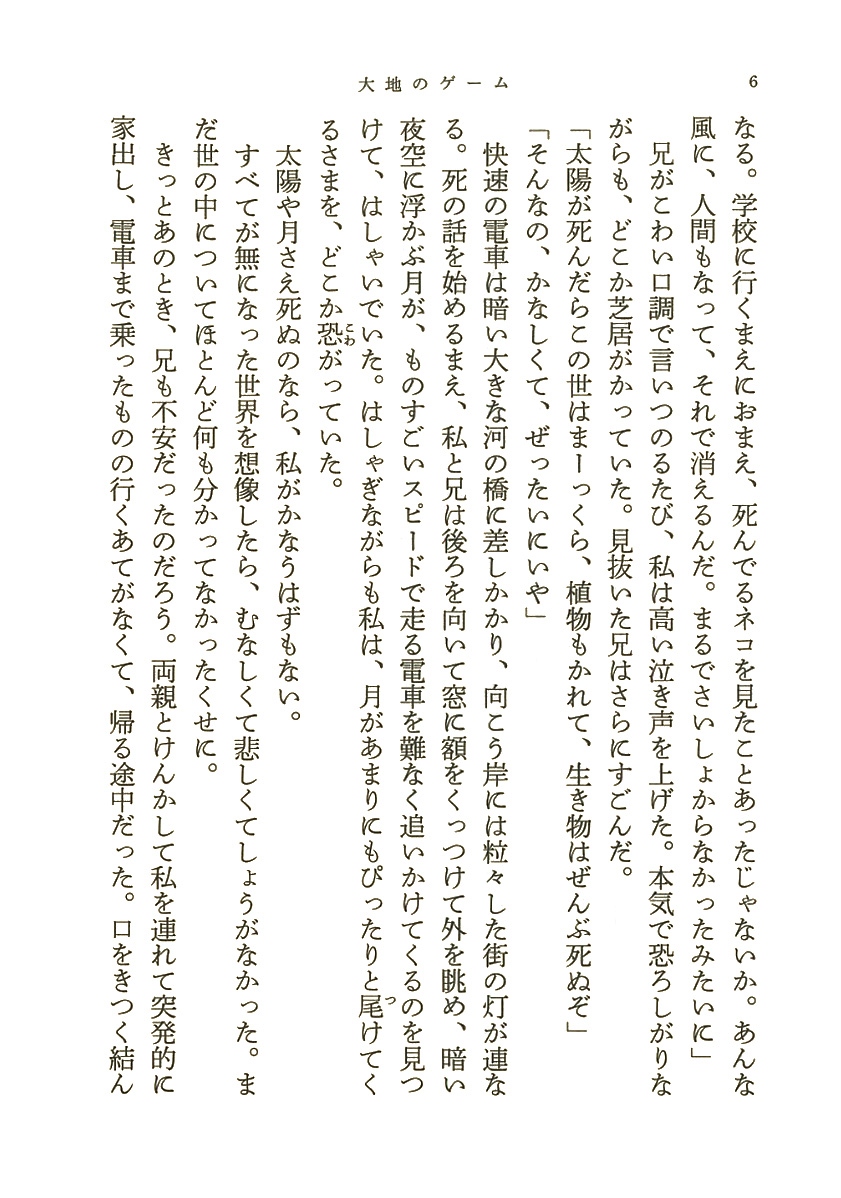 大地のゲーム
6
なる。学校に行くまえにおまえ、死んでるネコを見たことあったじゃないか。あんな
風に、人間もなって、それで消えるんだ。まるでさいしょからなかったみたいに」
兄がこわい口調で言いつのるたび、私は高い泣き声を上げた。本気で恐ろしがりな
がらも、どこか芝居がかっていた。見抜いた兄はさらにすごんだ。
「太陽が死んだらこの世はまーっくら、植物もかれて、生き物はぜんぶ死ぬぞ」
「そんなの、かなしくて、ぜったいにいや」
快速の電車は暗い大きな河の橋に差しかかり、向こう岸には粒々した街の灯が連な
る。死の話を始めるまえ、私と兄は後ろを向いて窓に額をくっつけて外を眺め、暗い
夜空に浮かぶ月が、ものすごいスピードで走る電車を難なく追いかけてくるのを見つ
けて、はしゃいでいた。はしゃぎながらも私は、月があまりにもぴったりと尾っけてく
るさまを、どこか恐こわがっていた。
太陽や月さえ死ぬのなら、私がかなうはずもない。
すべてが無になった世界を想像したら、むなしくて悲しくてしょうがなかった。ま
だ世の中についてほとんど何も分かってなかったくせに。
きっとあのとき、兄も不安だったのだろう。両親とけんかして私を連れて突発的に
家出し、電車まで乗ったものの行くあてがなくて、帰る途中だった。口をきつく結ん